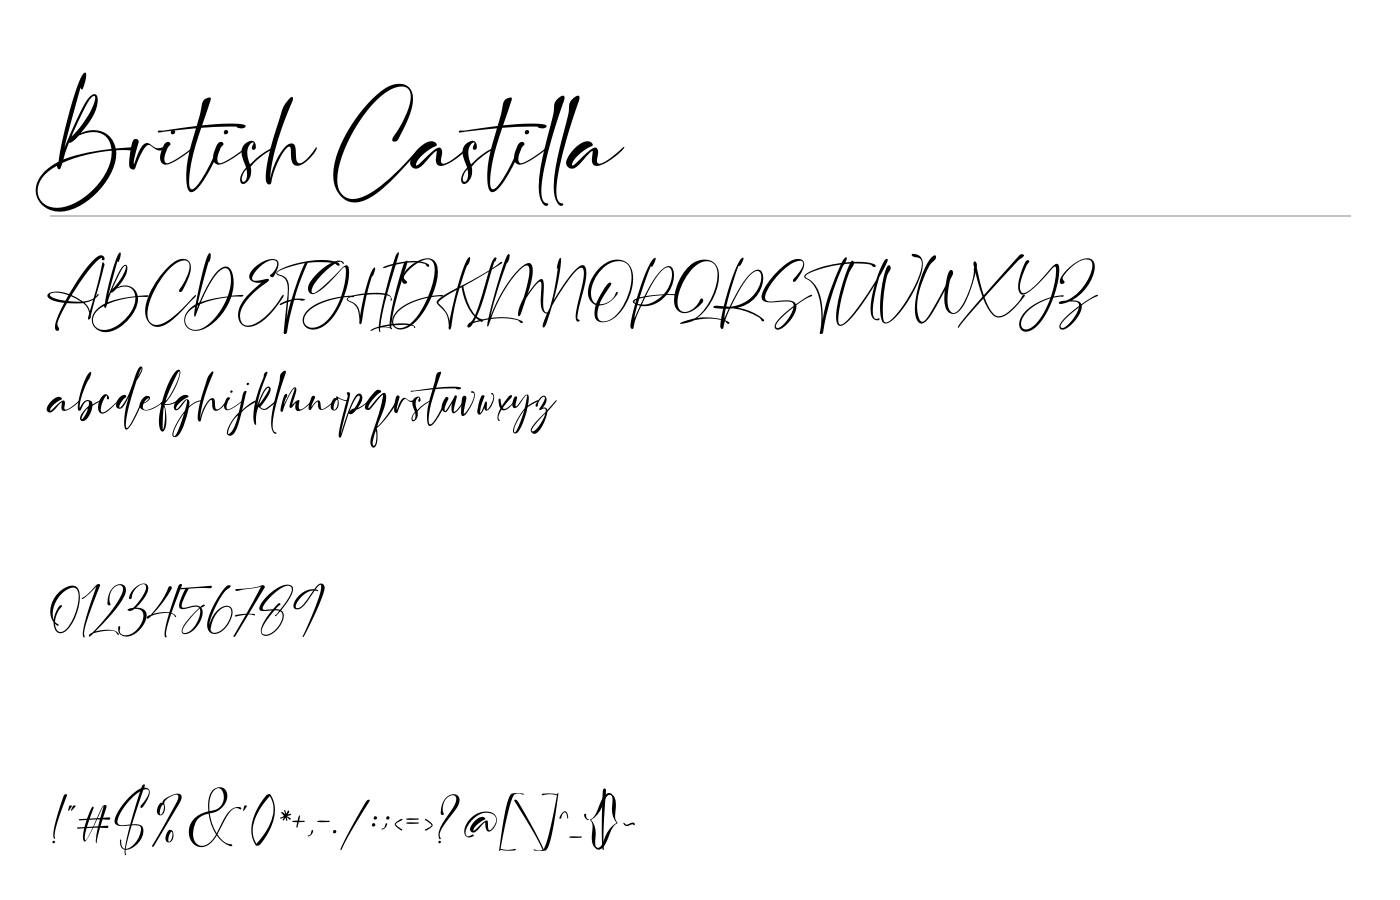 British Castilla
ABCDEFGHIJKLMNOPQRSTUVWXYZ
abcdefghijklmnopqrstuvwxyz
0123456789
!"#$%&'()*+,-./:;<=>?@[\]^_`{|}~